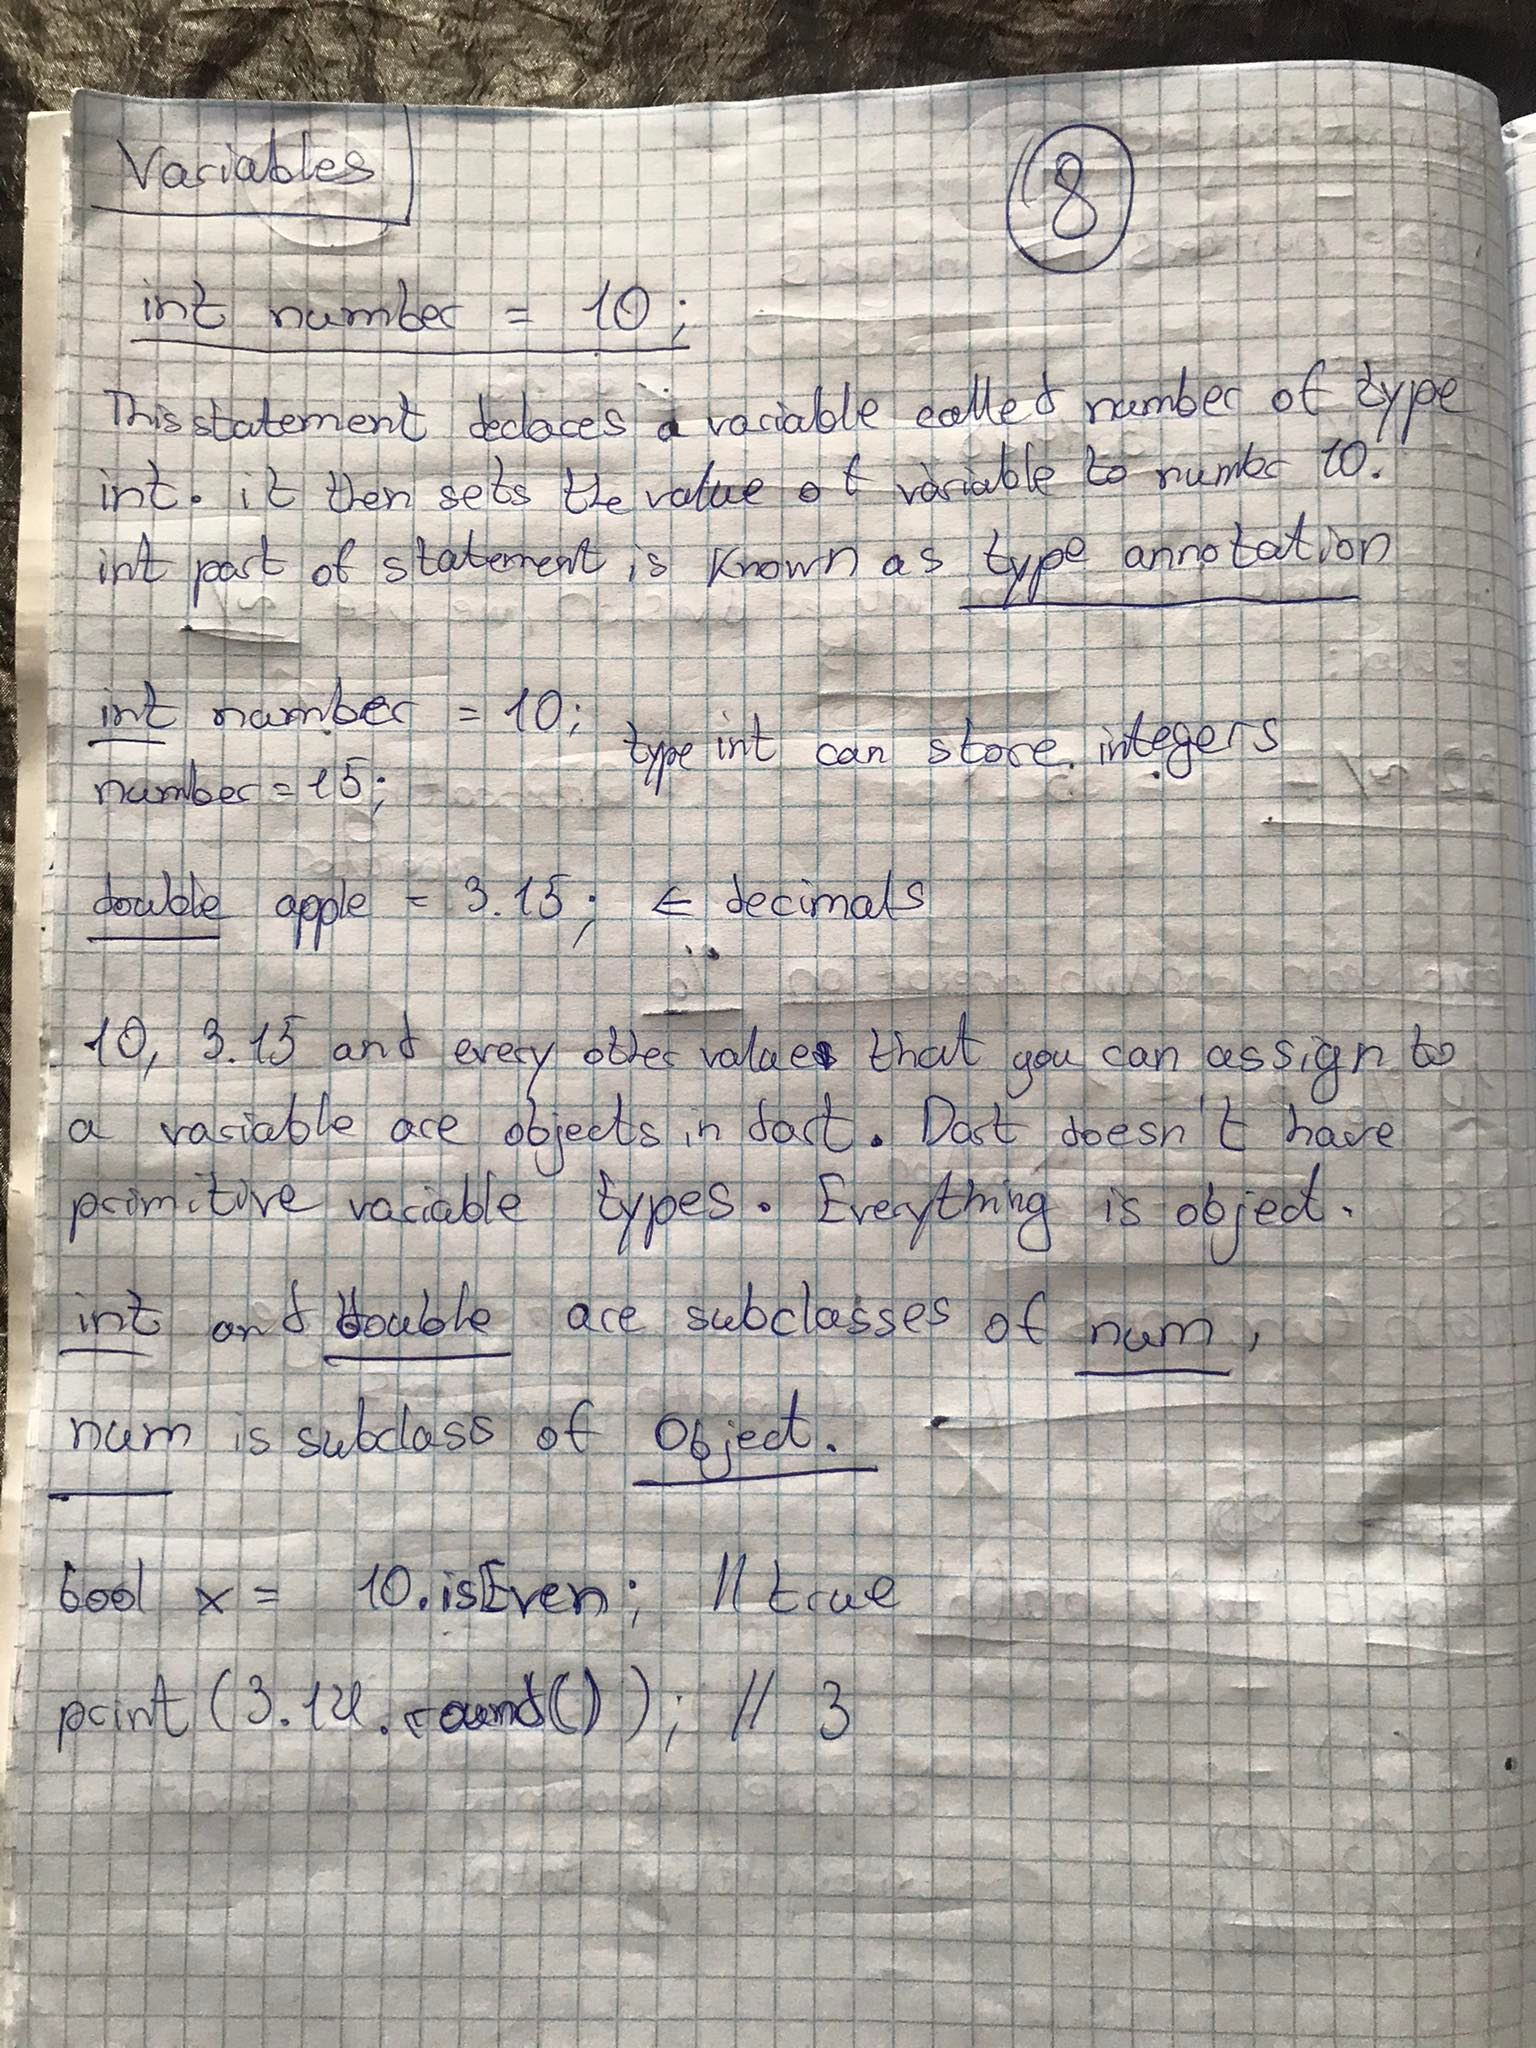 Variables
8
int number = 10;
This statement declares a variable called number of type
int. it then sets the value of variable to number 10.
int part of statement is known as type annotation
int number = 10;
type int can store integers
number = 15;
double apple = 3.15; ← decimals
10, 3.15 and every other values that you can assign to
a variable are objects in dart. Dart doesn't have
primitive variable types. Everything is object.
int and double are subclasses of num,
num is subclass of Object.
bool x = 10.isEven; // true
print(3.14.round()); // 3